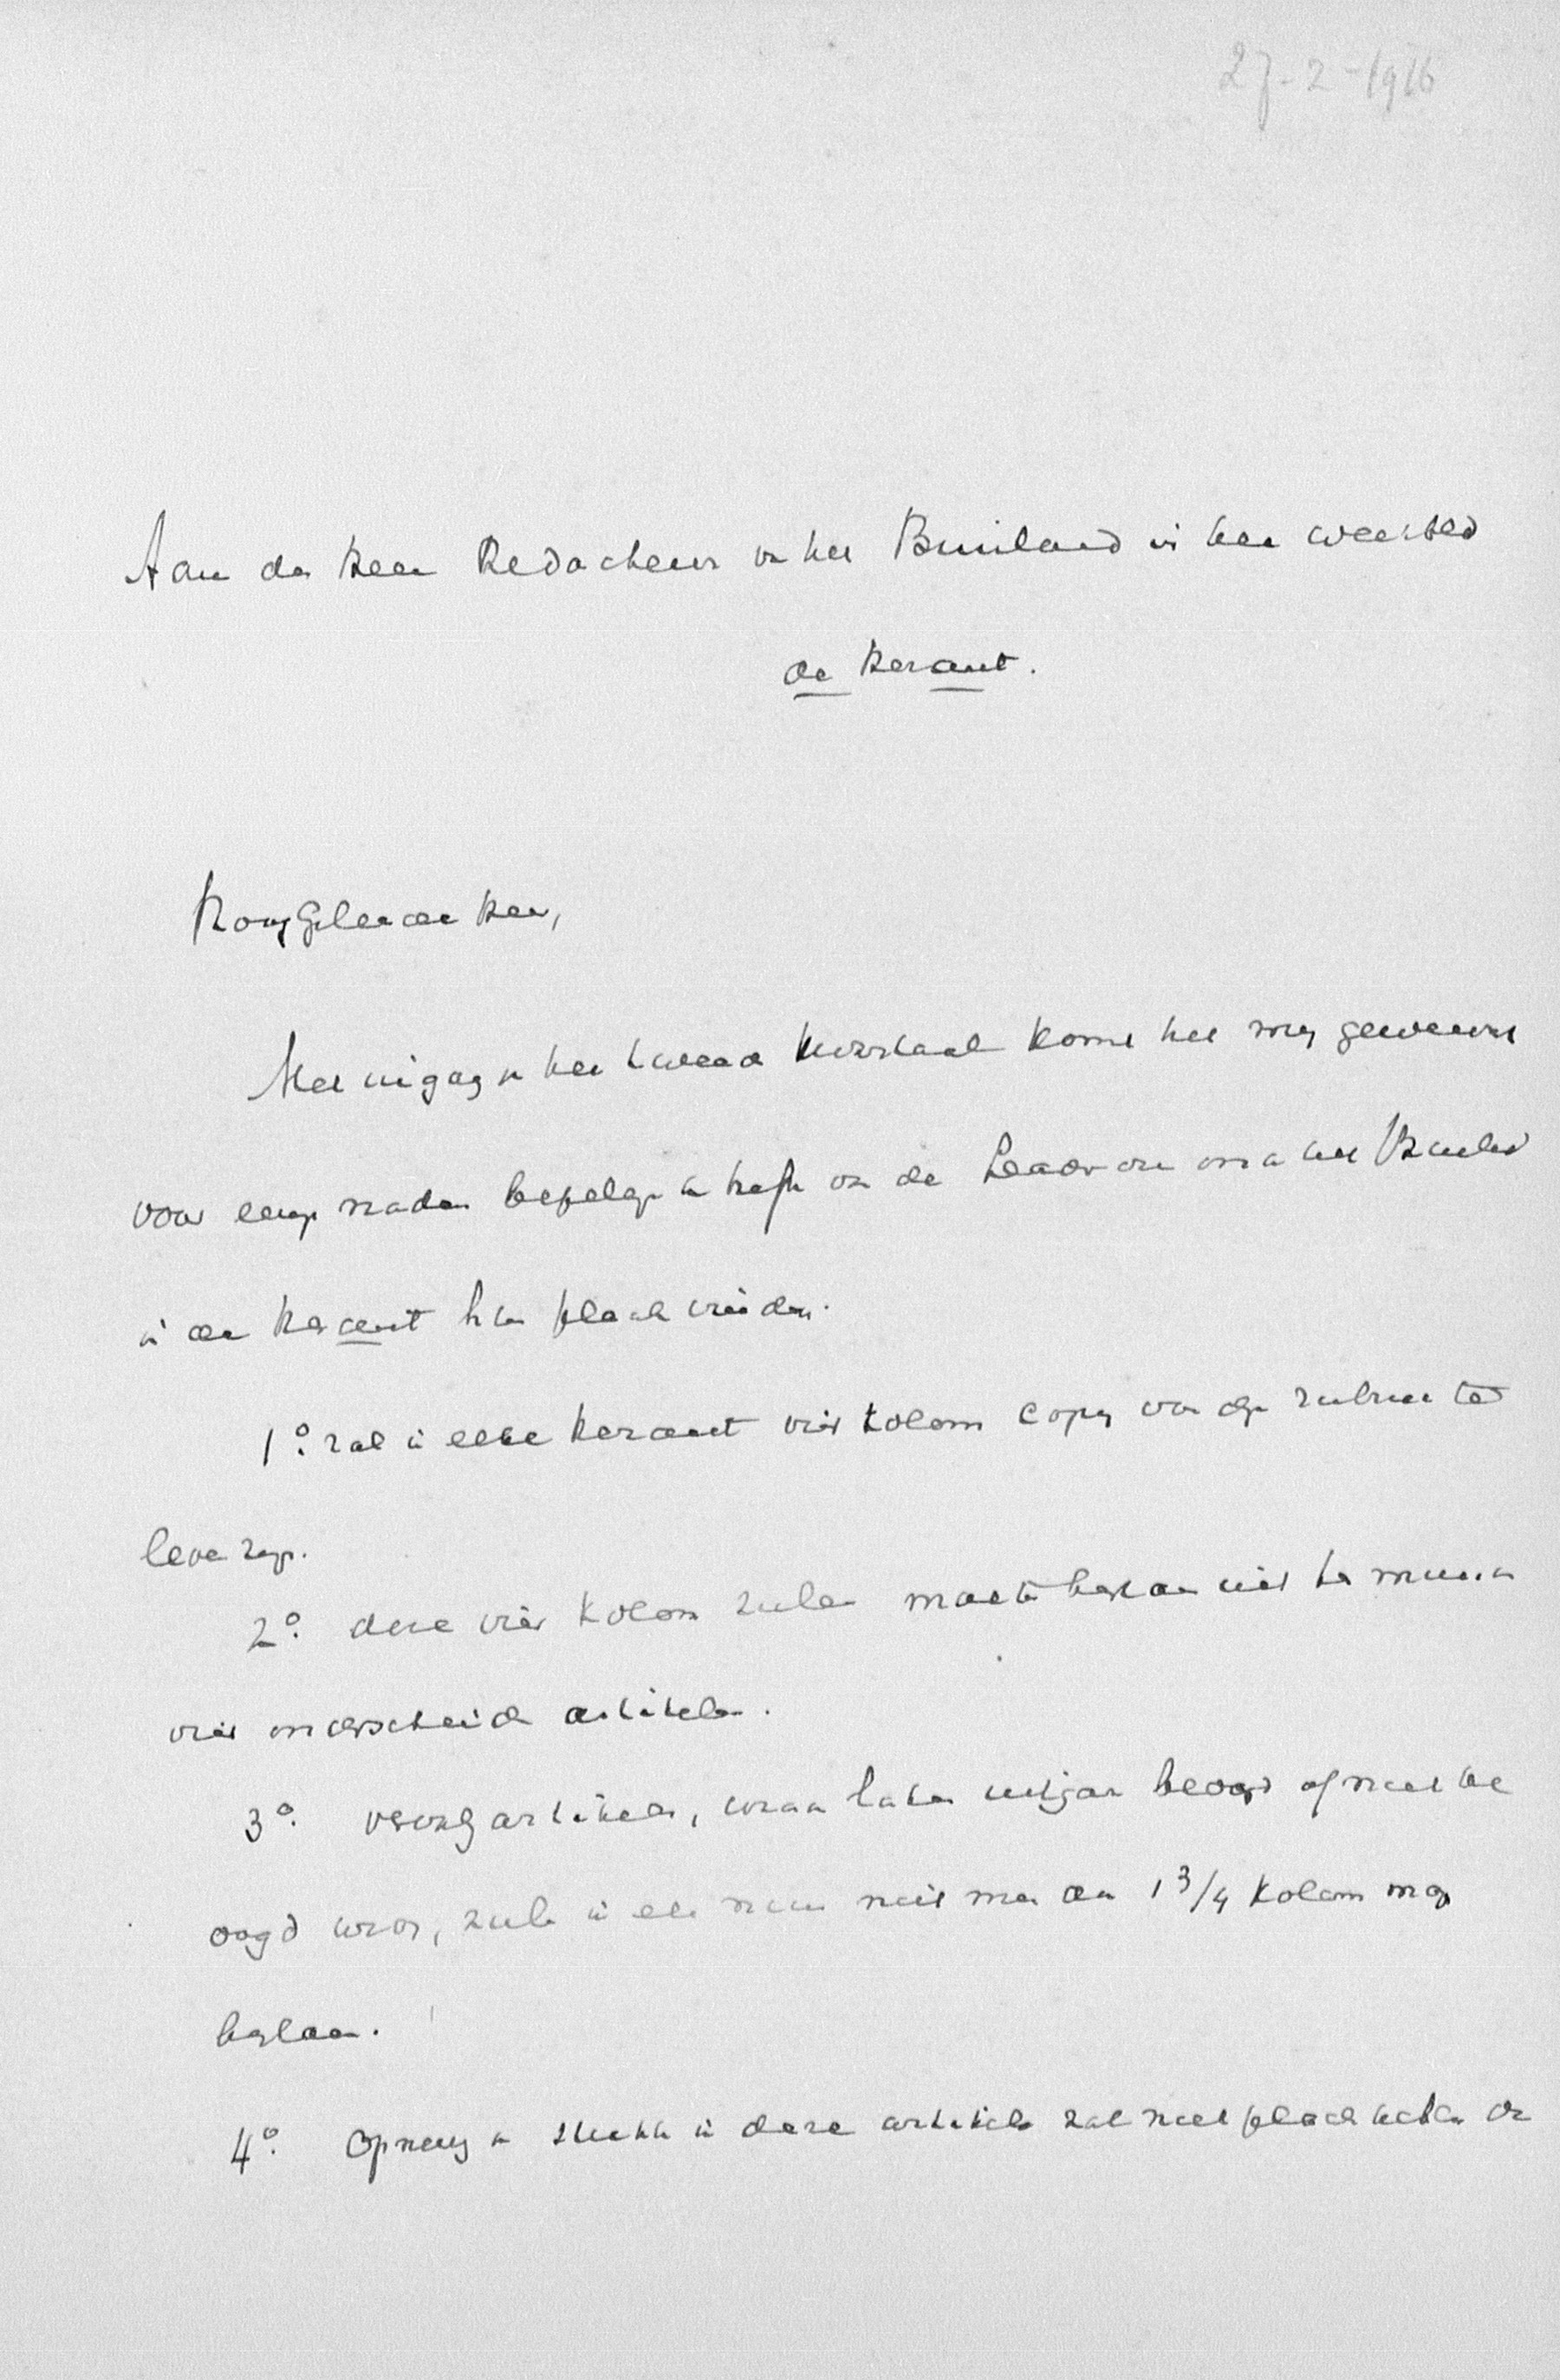 27-2-1916
Aan den Heer Redacteur van het Buitenland in het weekblad
de Heraut.
HoogGeleerde Heer,
Met ingang van het tweede kwartaal komt het mij gewenscht
voor eenige nadere bepalingen te treffen van de
in de Heraut hun plaats vinden.
1o. zal in elke Heraut vier kolom copy van deze rubriek te
leveren zijn.
2o. deze vier kolom zullen moeten bestaan uit ten minste
vier onderscheiden artikelen.
3o. vervolgartikelen, waar later uitgave beoogd of niet be
oogd word, zullen in een nummer niet meer dan 1 3/4 kolom mogen
beslaan.
4o. Opneming van stukken in deze artikelen zal niet plaats hebben